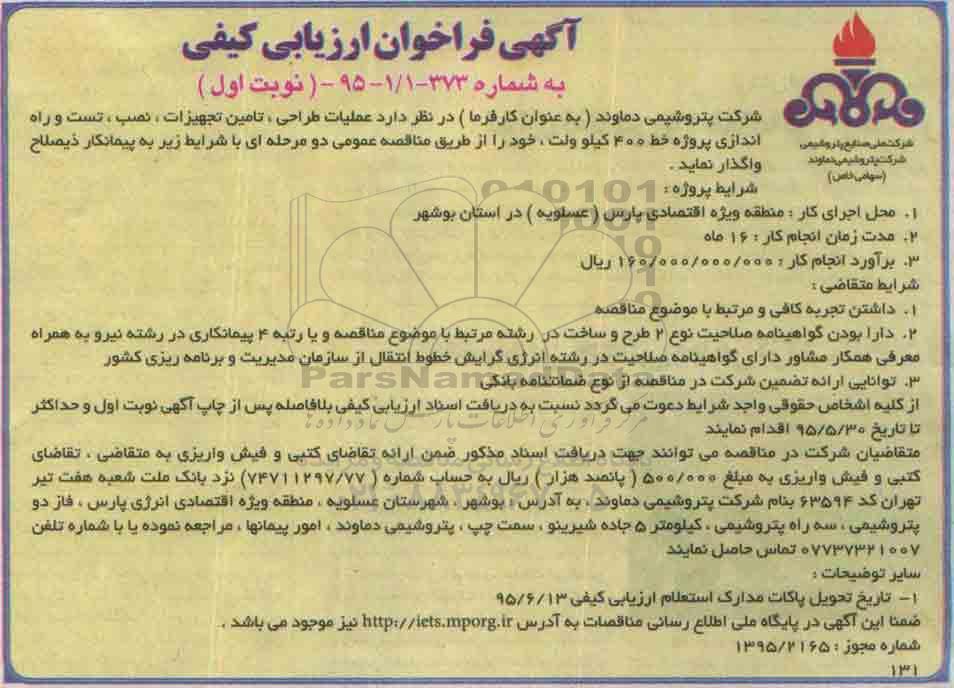 آگهی فراخوان ارزیابی کیفی
به شماره ۳۷۳-۱/۱-۹۵ - ( نوبت اول )
شرکت ملی صنایع پتروشیمی
شرکت پتروشیمی دماوند
(سهامی خاص)
شرکت پتروشیمی دماوند ( به عنوان کارفرما ) در نظر دارد عملیات طراحی ، تامین تجهیزات ، نصب ، تست و راه
اندازی پروژه خط ۴۰۰ کیلو ولت ، خود را از طریق مناقصه عمومی دو مرحله ای با شرایط زیر به پیمانکار ذیصلاح
واگذار نماید .
شرایط پروژه :
۱. محل اجرای کار : منطقه ویژه اقتصادی پارس ( عسلویه ) در استان بوشهر
۲. مدت زمان انجام کار : ۱۶ ماه
۳. برآورد انجام کار : ۱۶۰/۰۰۰/۰۰۰/۰۰۰ ریال
شرایط متقاضی :
۱. داشتن تجربه کافی و مرتبط با موضوع مناقصه
۲. دارا بودن گواهینامه صلاحیت نوع ۲ طرح و ساخت در رشته مرتبط با موضوع مناقصه و یا رتبه ۴ پیمانکاری در رشته نیرو به همراه
معرفی همکار مشاور دارای گواهینامه صلاحیت در رشته انرژی گرایش خطوط انتقال از سازمان مدیریت و برنامه ریزی کشور
۳. توانایی ارائه تضمین شرکت در مناقصه از نوع ضمانتنامه بانکی
از کلیه اشخاص حقوقی واجد شرایط دعوت می گردد نسبت به دریافت اسناد ارزیابی کیفی بلافاصله پس از چاپ آگهی نوبت اول و حداکثر
تا تاریخ ۹۵/۵/۳۰ اقدام نمایند
متقاضیان شرکت در مناقصه می توانند جهت دریافت اسناد مذکور ضمن ارائه تقاضای کتبی و فیش واریزی به متقاضی ، تقاضای
کتبی و فیش واریزی به مبلغ ۵۰۰/۰۰۰ ( پانصد هزار ) ریال به حساب شماره ( ۷۴۷۱۱۲۹۷/۷۷) نزد بانک ملت شعبه هفت تیر
تهران کد ۶۳۵۹۴ بنام شرکت پتروشیمی دماوند ، به آدرس : بوشهر ، شهرستان عسلویه ، منطقه ویژه اقتصادی انرژی پارس ، فاز دو
پتروشیمی ، سه راه پتروشیمی ، کیلومتر ۵ جاده شیرینو ، سمت چپ ، پتروشیمی دماوند ، امور پیمانها ، مراجعه نموده یا با شماره تلفن
۰۷۷۳۷۳۲۱۰۰۷ تماس حاصل نمایند
سایر توضیحات :
۱- تاریخ تحویل پاکات مدارک استعلام ارزیابی کیفی ۹۵/۶/۱۳
ضمنا این آگهی در پایگاه ملی اطلاع رسانی مناقصات به آدرس http://iets.mporg.ir نیز موجود می باشد .
شماره مجوز : ۱۳۹۵/۲۱۶۵
۱۳۱
ParsNamadData